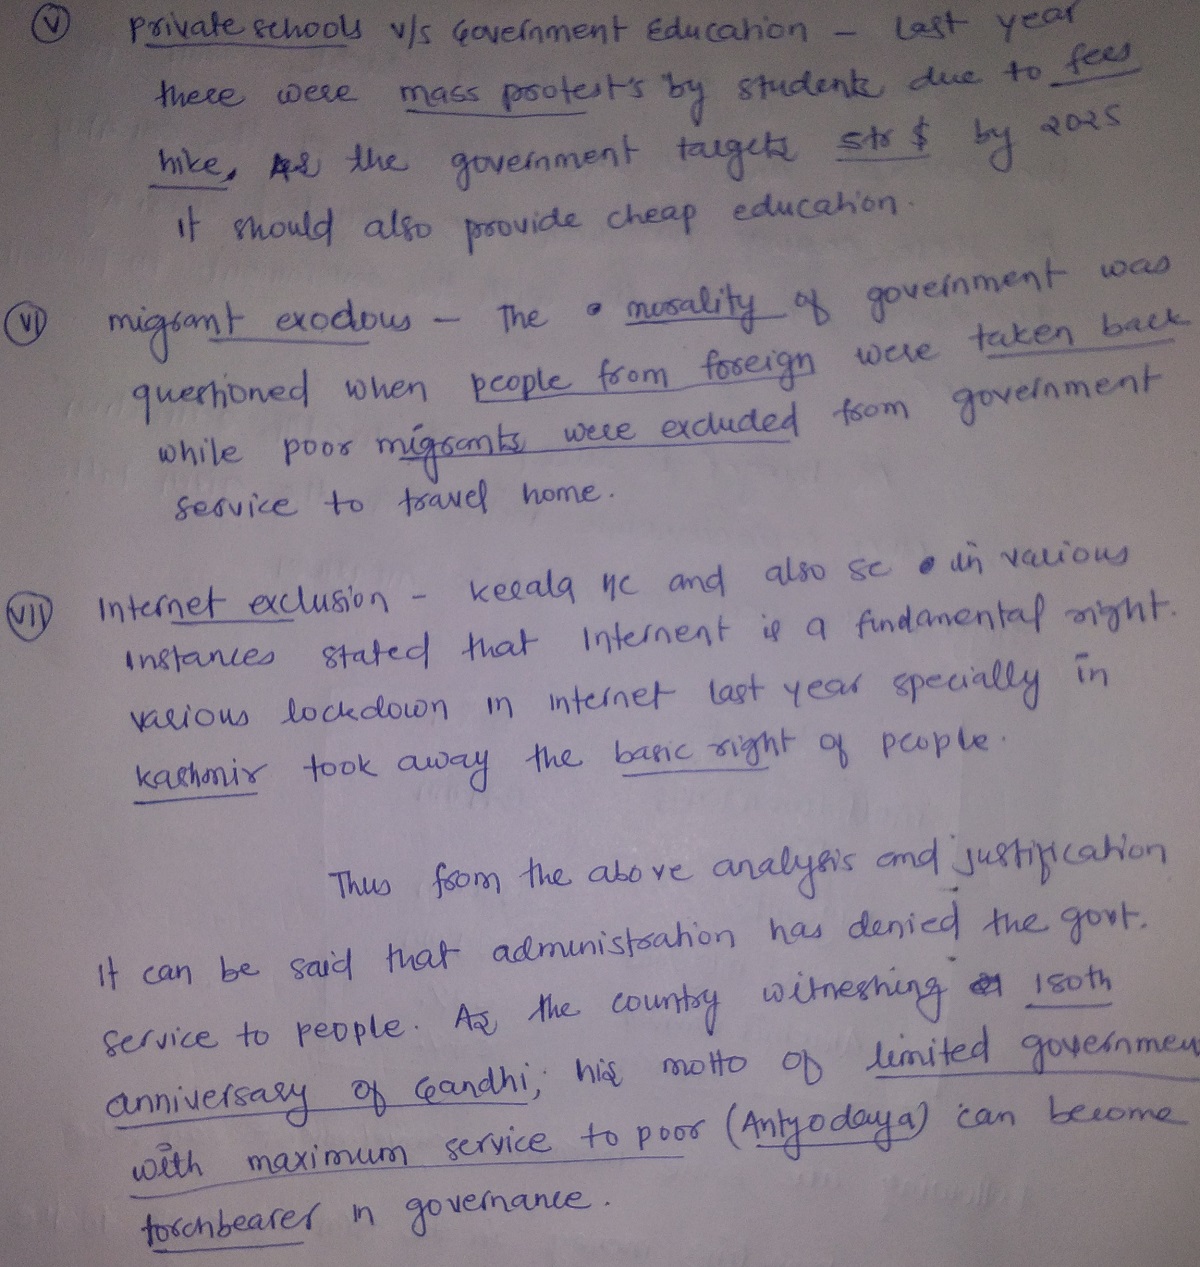 (V) Private schools v/s Government Education - Last year
there were mass protest's by students due to fees
hike. As the government targets 5tr $ by 2025
it should also provide cheap education.
(VI) migrant exodous - The morality of government was
questioned when people from foreign were taken back
while poor migrants were excluded from government
service to travel home.
(VII) Internet exclusion - Kerala HC and also SC in various
instances stated that Internent is a fundamental right.
various lockdown in internet last year specially in
Kashmir took away the basic right of people.
Thus from the above analysis and justification
it can be said that administration has denied the govt.
service to people. As the country witneshing 150th
anniversary of Gandhi, his motto of limited governmen
with maximum service to poor (Antyodaya) can become
torchbearer in governance.